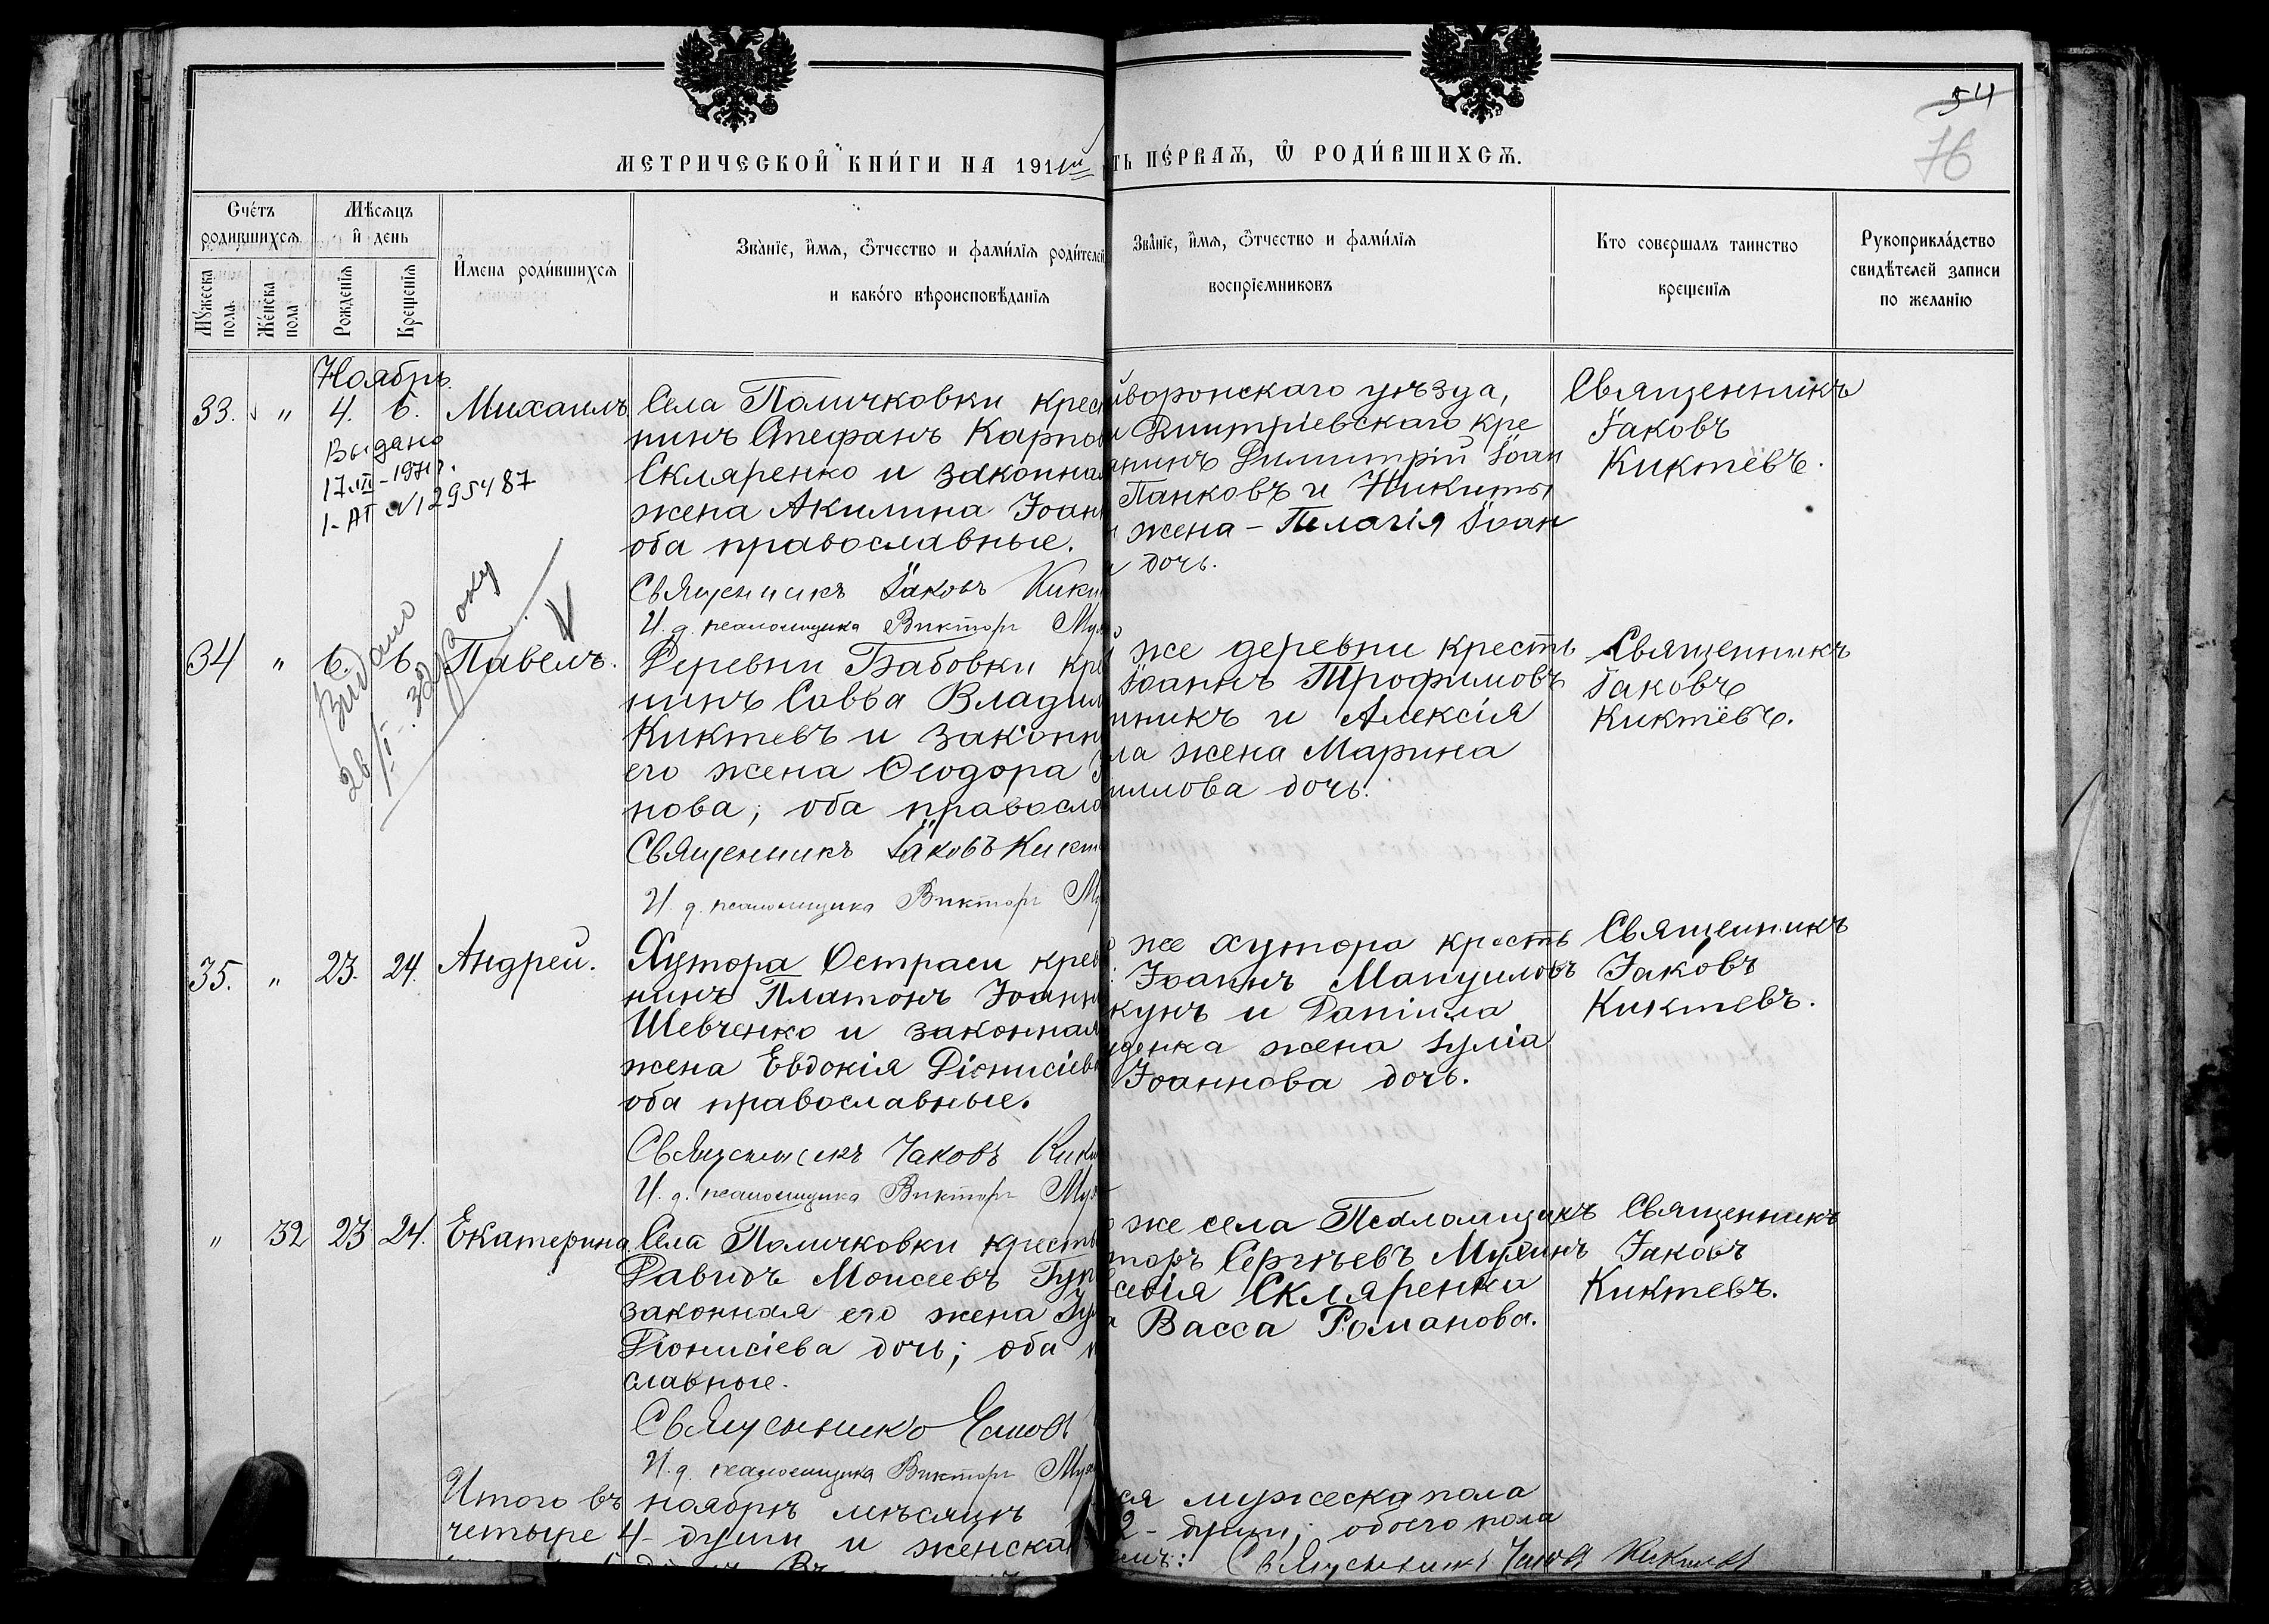 54
76
МЕТРИЧЕСКОЙ КНИ́ГИ НА 191
ть ПЕ́РВАѦ, Ѡ РОДИ́ВШИХСѦ.
Сче́тъ родившихсѧ
Мѣсѧцъ и́ день
Му́жеска пола.
Же́нска пола
Рожденїѧ
Крещенїѧ
И҆мена роди́вшихсѧ
Зва́нїе, и҆́мѧ, ѻ҆́тчество и фами́лїѧ роди́телей
и како́го вѣроисповѣ́данїѧ
Зва́нїе, и҆́мѧ, ѻ҆́тчество и фами́лїѧ
воспрїемниковъ
Кто совершалъ таинство
крещенїѧ
Рукоприкла́дство
свидѣ́телей записи
по желанїю
Ноябрь.
33. " 4. 6. Михаилъ
Выдано
17.III-1971г.
1-АП №1295487
Села Паличковки крест
нинъ Стефанъ Карпов
Скляренко и законная
жена Акилина Іоанн
оба православные.
Священникъ Іаковъ Кикт
И. д. псаломщика Викторъ Му
йворонскаго уѣзда,
Дмитріевскаго кре
нинъ Димитрій Іоан
Панковъ и Никиты
жена - Пелагія Іоан
дочь.
Священникъ
Іаковъ
Киктевъ.
34 " 6. 6 Павелъ.
Видано
Деревни Бабовки кре
нинъ Савва Владим
Киктевъ и законн
его жена Ѳеодора
нова, оба правосла
Священникъ Іаковъ Кикт
И. д. псаломщика Викторъ М
же деревни кресть
Іоаннъ Трофимовъ
никъ и Алексія
ла жена Марина
иллова дочь.
Священникъ
Іаковъ
Киктевъ.
35. " 23. 24. Андрей.
Хутора Остраги крес
нинъ Платонъ Іоанн
Шевченко и законная
жена Евдокія Діонисіев
оба православные.
Священникъ Іаковъ Кикт
И. д. псаломщика Викторъ Му
же хутора кресть
Іоаннъ Мануиловъ
кунъ и Даніила
денка жена Іулія
Іоаннова дочь.
Священникъ
Іаковъ
Киктевъ.
" 32 23 24. Екатерина
Села Паличковки кресть
Давидъ Моисеевъ Гур
законная его жена Іу
Діонисіева дочь; оба п
славные.
Священникъ Іаковъ
И. д. псаломщика Викторъ Му
же села Псаломщикъ
торъ Сергѣевъ Мухинъ
севія Скляренка
Васса Романова.
Священникъ
Іаковъ
Киктевъ.
Итого въ ноябрѣ мѣсяцѣ
ся мужеска пола
четыре 4- души и женска
2- души; обоего пола
Священникъ Іаковъ Киктевъ